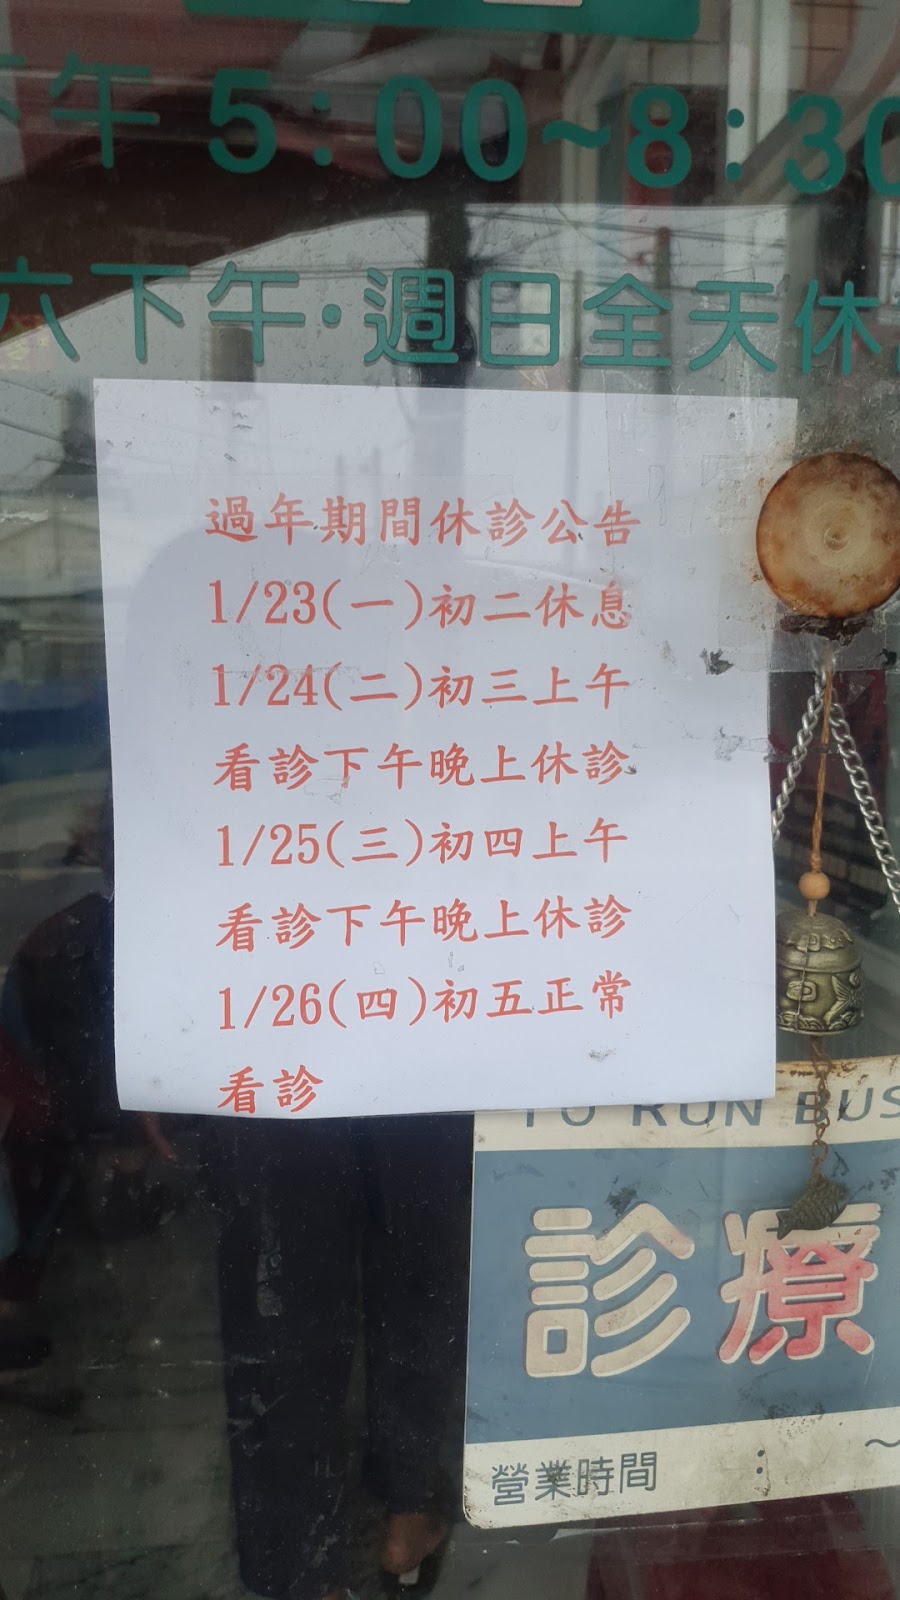 下午 5:00~8:30
六下午·週日全天休
過年期間休診公告
1/23(一)初二休息
1/24(二)初三上午
看診下午晚上休診
1/25(三)初四上午
看診下午晚上休診
1/26(四)初五正常
看診
TO RUN BUS
診療
營業時間 : ~